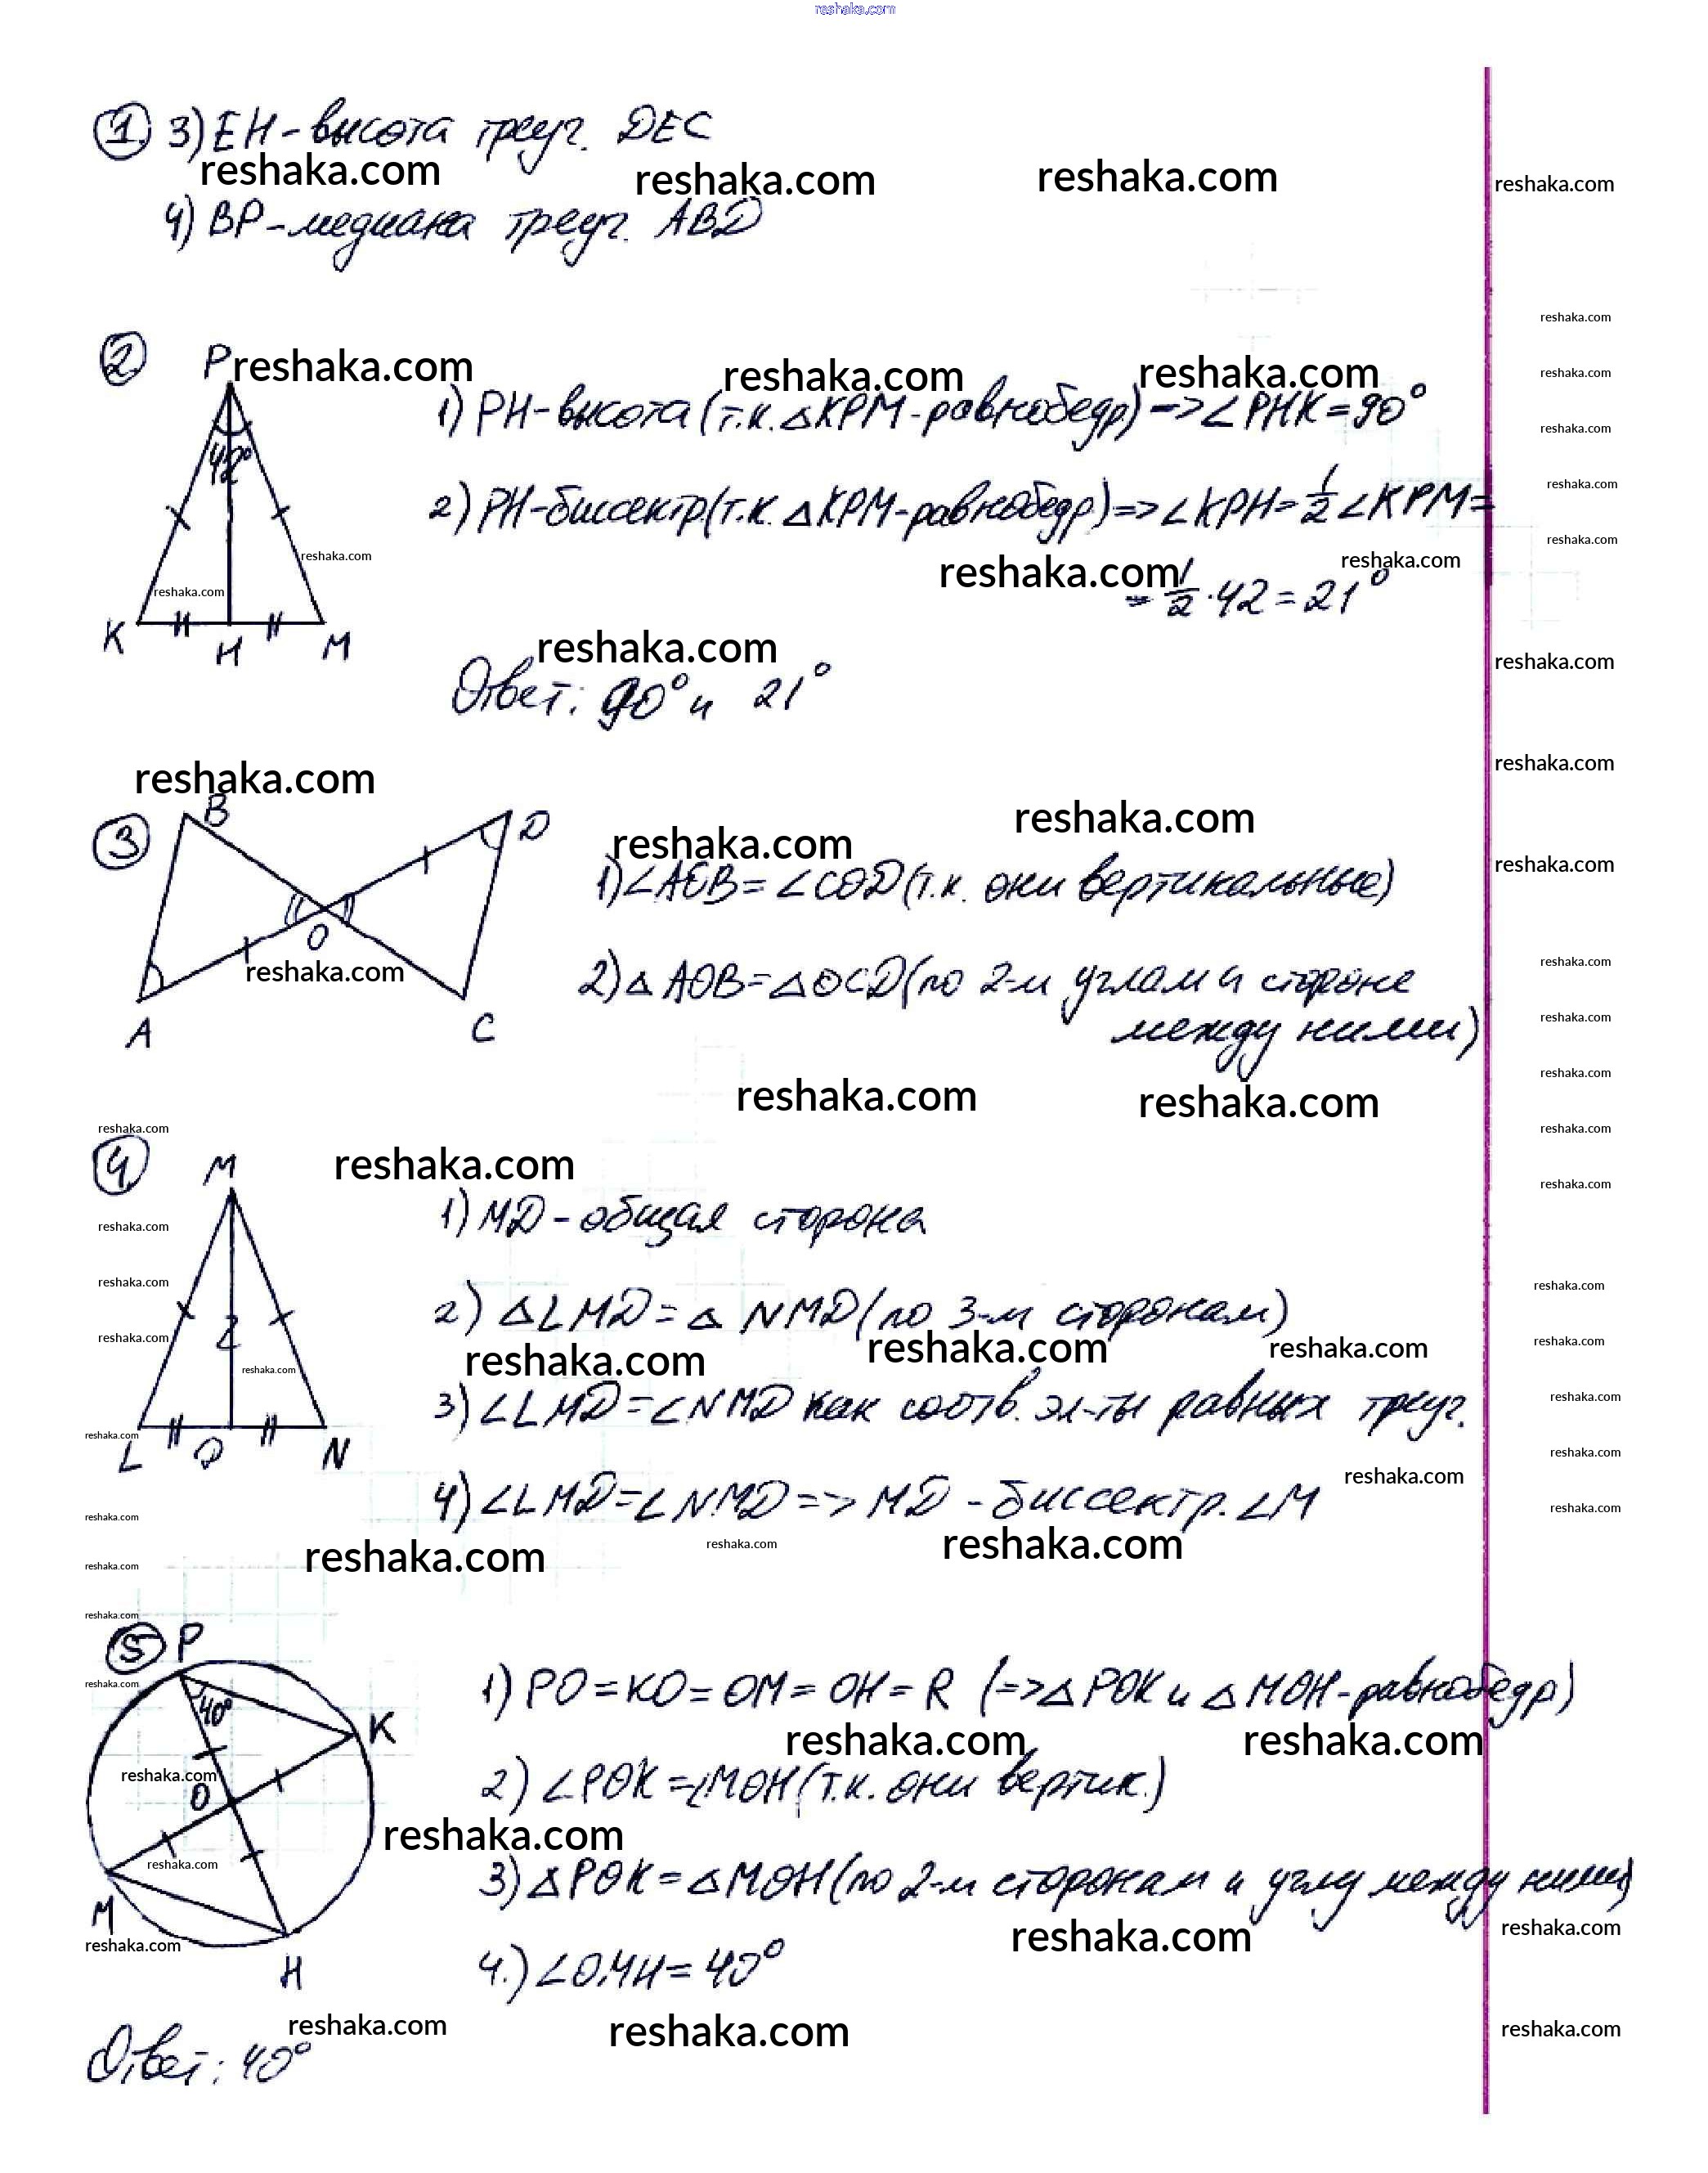 reshaka.com
1. 3) EH - высота треуг. DEC
reshaka.com reshaka.com reshaka.com reshaka.com
4) BP - медиана треуг. ABD
reshaka.com
2 P reshaka.com reshaka.com reshaka.com reshaka.com
1) PH - высота (т.к. △KPM - равнобедр) => ∠PHK = 90°
reshaka.com
42°
2) PH - биссектр. (т.к. △KPM - равнобедр.) => ∠KPH = 1/2 ∠KPM =
reshaka.com
reshaka.com
reshaka.com reshaka.com reshaka.com
= 1/2 · 42 = 21°
reshaka.com
K H M
reshaka.com reshaka.com
Ответ: 90° и 21°
reshaka.com reshaka.com
3 B D
reshaka.com reshaka.com reshaka.com
1) ∠AOB = ∠COD (т.к. они вертикальные)
O
reshaka.com reshaka.com
2) △AOB = △OCD (по 2-м углам и стороне
между ними)
A C
reshaka.com
reshaka.com reshaka.com reshaka.com
reshaka.com reshaka.com
4 M reshaka.com reshaka.com
1) MD - общая сторона
reshaka.com
reshaka.com reshaka.com
2) △LMD = △NMD (по 3-м сторонам)
reshaka.com reshaka.com reshaka.com reshaka.com reshaka.com
reshaka.com
3) ∠LMD = ∠NMD как соотв. эл-ты равных треуг.
reshaka.com
reshaka.com
L D N
reshaka.com reshaka.com
4) ∠LMD = ∠NMD => MD - биссектр. ∠M
reshaka.com reshaka.com
reshaka.com reshaka.com reshaka.com
reshaka.com
reshaka.com
5 P
reshaka.com
1) PO = KO = OM = OH = R (=> △POK и △MOH - равнобедр)
40°
K
reshaka.com reshaka.com
reshaka.com
O
2) ∠POK = ∠MOH (т.к. они вертик.)
reshaka.com
reshaka.com
3) △POK = △MOH (по 2-м сторонам и углу между ними)
M
reshaka.com reshaka.com reshaka.com
H
4.) ∠OMH = 40°
reshaka.com reshaka.com reshaka.com
Ответ: 40°